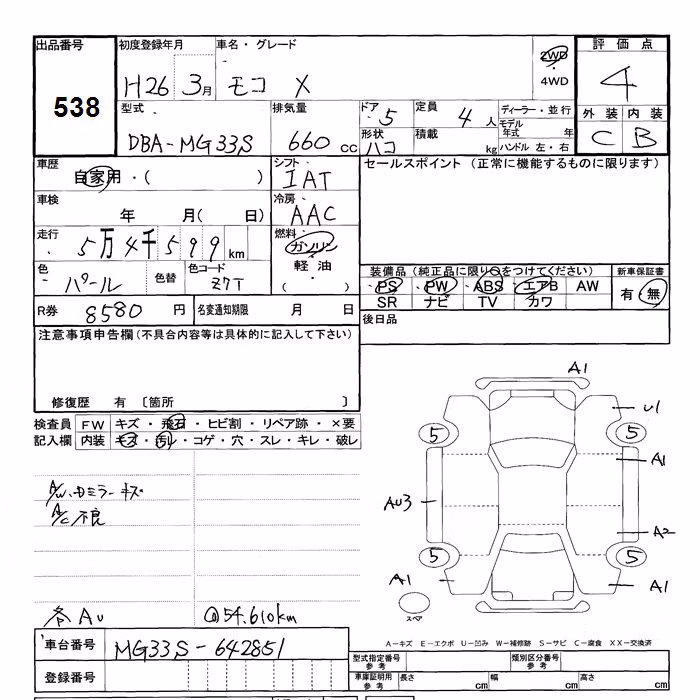 出品番号 初度登録年月 車名・グレード 2WD ・ 4WD 評価点
538 H26 3月 モコ X 4
型式 排気量 ドア 定員 ディーラー・並行 外装 内装
DBA-MG33S 660 cc 5 4 人 モデル年式 年 C B
形状 ハコ 積載 kg ハンドル 左・右
車歴 シフト セールスポイント (正常に機能するものに限ります)
自家用・( ) IAT
車検 冷房
年 月( 日) AAC
走行 燃料
5万4千599km ガソリン・軽油・( )
色 色替 色コード 装備品(純正品に限り○をつけてください) 新車保証書
パール Z7T PS PW ABS エアB AW 有・無
SR ナビ TV カワ
R券 8580 円 名変通知期限 月 日 後日品
注意事項申告欄(不具合内容等は具体的に記入して下さい)
修復歴 有 〔箇所 〕
検査員 FW キズ・飛石・ヒビ割・リペア跡・×要
記入欄 内装 キズ・汚レ・コゲ・穴・スレ・キレ・破レ
A/W.ドミラーキズ
A/C不良
各AU @54.610km
A1
U1
5 5
A1
AU3
A2
5 5
A1 A1
スペア
A-キズ E-エクボ U-凹み W-補修跡 S-サビ C-腐食 XX-交換済
車台番号 MG33S-642851
型式指定番号 参考 類別区分番号 参考
登録番号 車庫証明用 参考 長さ cm 幅 cm 高さ cm